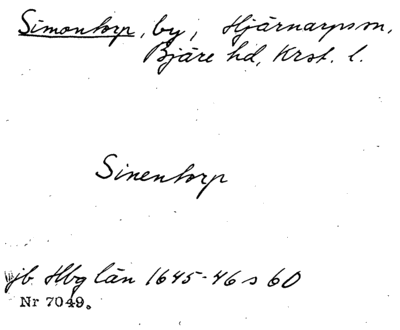 Simontorp, by, Hjärnarpssn,
Bjäre hd, Krst. l.
Sinentorp
jb Hbg län 1645-46 s 60
Nr 7049.